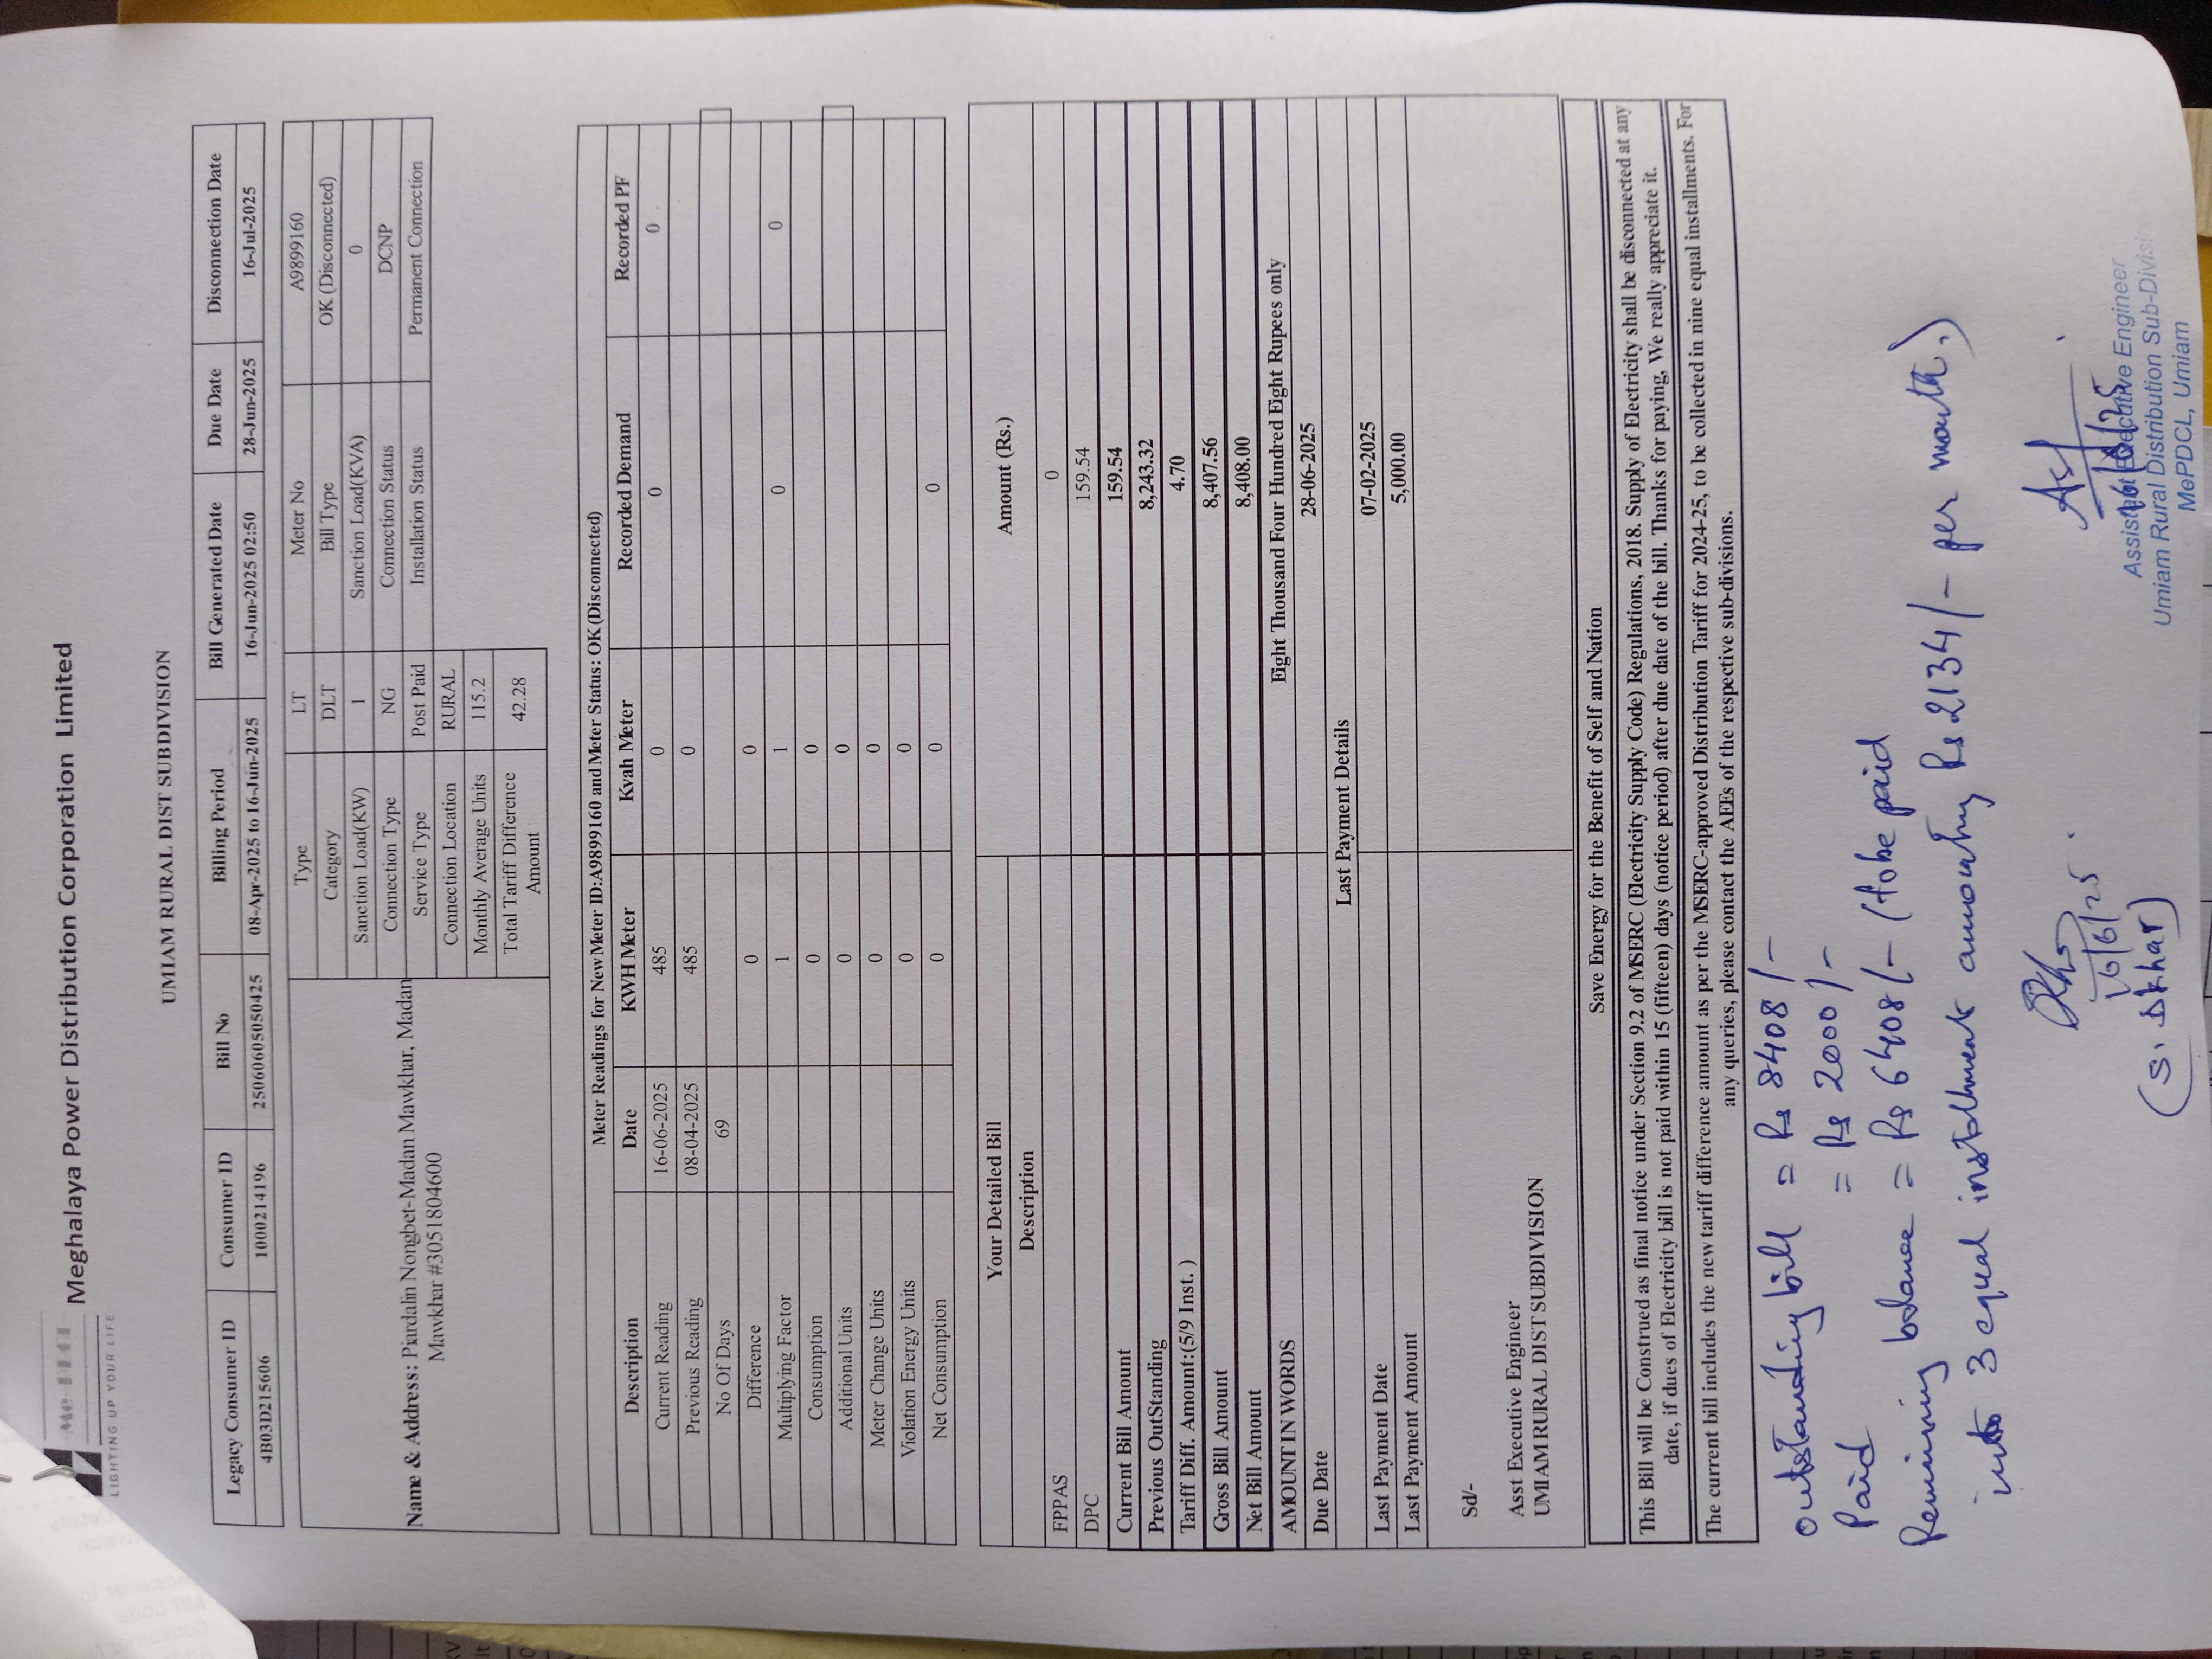 Meghalaya Power Distribution Corporation Limited
LIGHTING UP YOUR LIFE
UMIAM RURAL DIST SUBDIVISION
Legacy Consumer ID Consumer ID Bill No Billing Period Bill Generated Date Due Date Disconnection Date
4B03D215606 1000214196 250606050504​25 08-Apr-2025 to 16-Jun-2025 16-Jun-2025 02:50 28-Jun-2025 16-Jul-2025
Name & Address: Piardalin Nongbet-Madan Mawkhar, Madan
Mawkhar #3051804600
Type LT Meter No A9899160
Category DLT Bill Type OK (Disconnected)
Sanction Load(KW) 1 Sanction Load(KVA) 0
Connection Type NG Connection Status DCNP
Service Type Post Paid Installation Status Permanent Connection
Connection Location RURAL
Monthly Average Units 115.2
Total Tariff Difference Amount 42.28
Meter Readings for New Meter ID:A9899160 and Meter Status: OK (Disconnected)
Description Date KWH Meter Kvah Meter Recorded Demand Recorded PF
Current Reading 16-06-2025 485 0 0 0
Previous Reading 08-04-2025 485 0
No Of Days 69
Difference 0 0
Multiplying Factor 1 1 0 0
Consumption 0 0
Additional Units 0 0
Meter Change Units 0 0
Violation Energy Units 0 0
Net Consumption 0 0 0
Your Detailed Bill
Description Amount (Rs.)
FPPAS 0
DPC 159.54
Current Bill Amount 159.54
Previous OutStanding 8,243.32
Tariff Diff. Amount:(5/9 Inst. ) 4.70
Gross Bill Amount 8,407.56
Net Bill Amount 8,408.00
AMOUNT IN WORDS Eight Thousand Four Hundred Eight Rupees only
Due Date 28-06-2025
Last Payment Details
Last Payment Date 07-02-2025
Last Payment Amount 5,000.00
Sd/-
Asst Executive Engineer
UMIAM RURAL DIST SUBDIVISION
Save Energy for the Benefit of Self and Nation
This Bill will be Construed as final notice under Section 9.2 of MSERC (Electricity Supply Code) Regulations, 2018. Supply of Electricity shall be disconnected at any
date, if dues of Electricity bill is not paid within 15 (fifteen) days (notice period) after due date of the bill. Thanks for paying, We really appreciate it.
The current bill includes the new tariff difference amount as per the MSERC-approved Distribution Tariff for 2024-25, to be collected in nine equal installments. For
any queries, please contact the AEEs of the respective sub-divisions.
Outstanding bill = Rs 8408/-
Paid = Rs 2000/-
Remining balance = Rs 6408/- (to be paid
into 3 equal installment amounting Rs 2134/- per month.)
16/6/25
(S. Dkhar)
16/6/25
Assistant Executive Engineer
Umiam Rural Distribution Sub-Division
MePDCL, Umiam